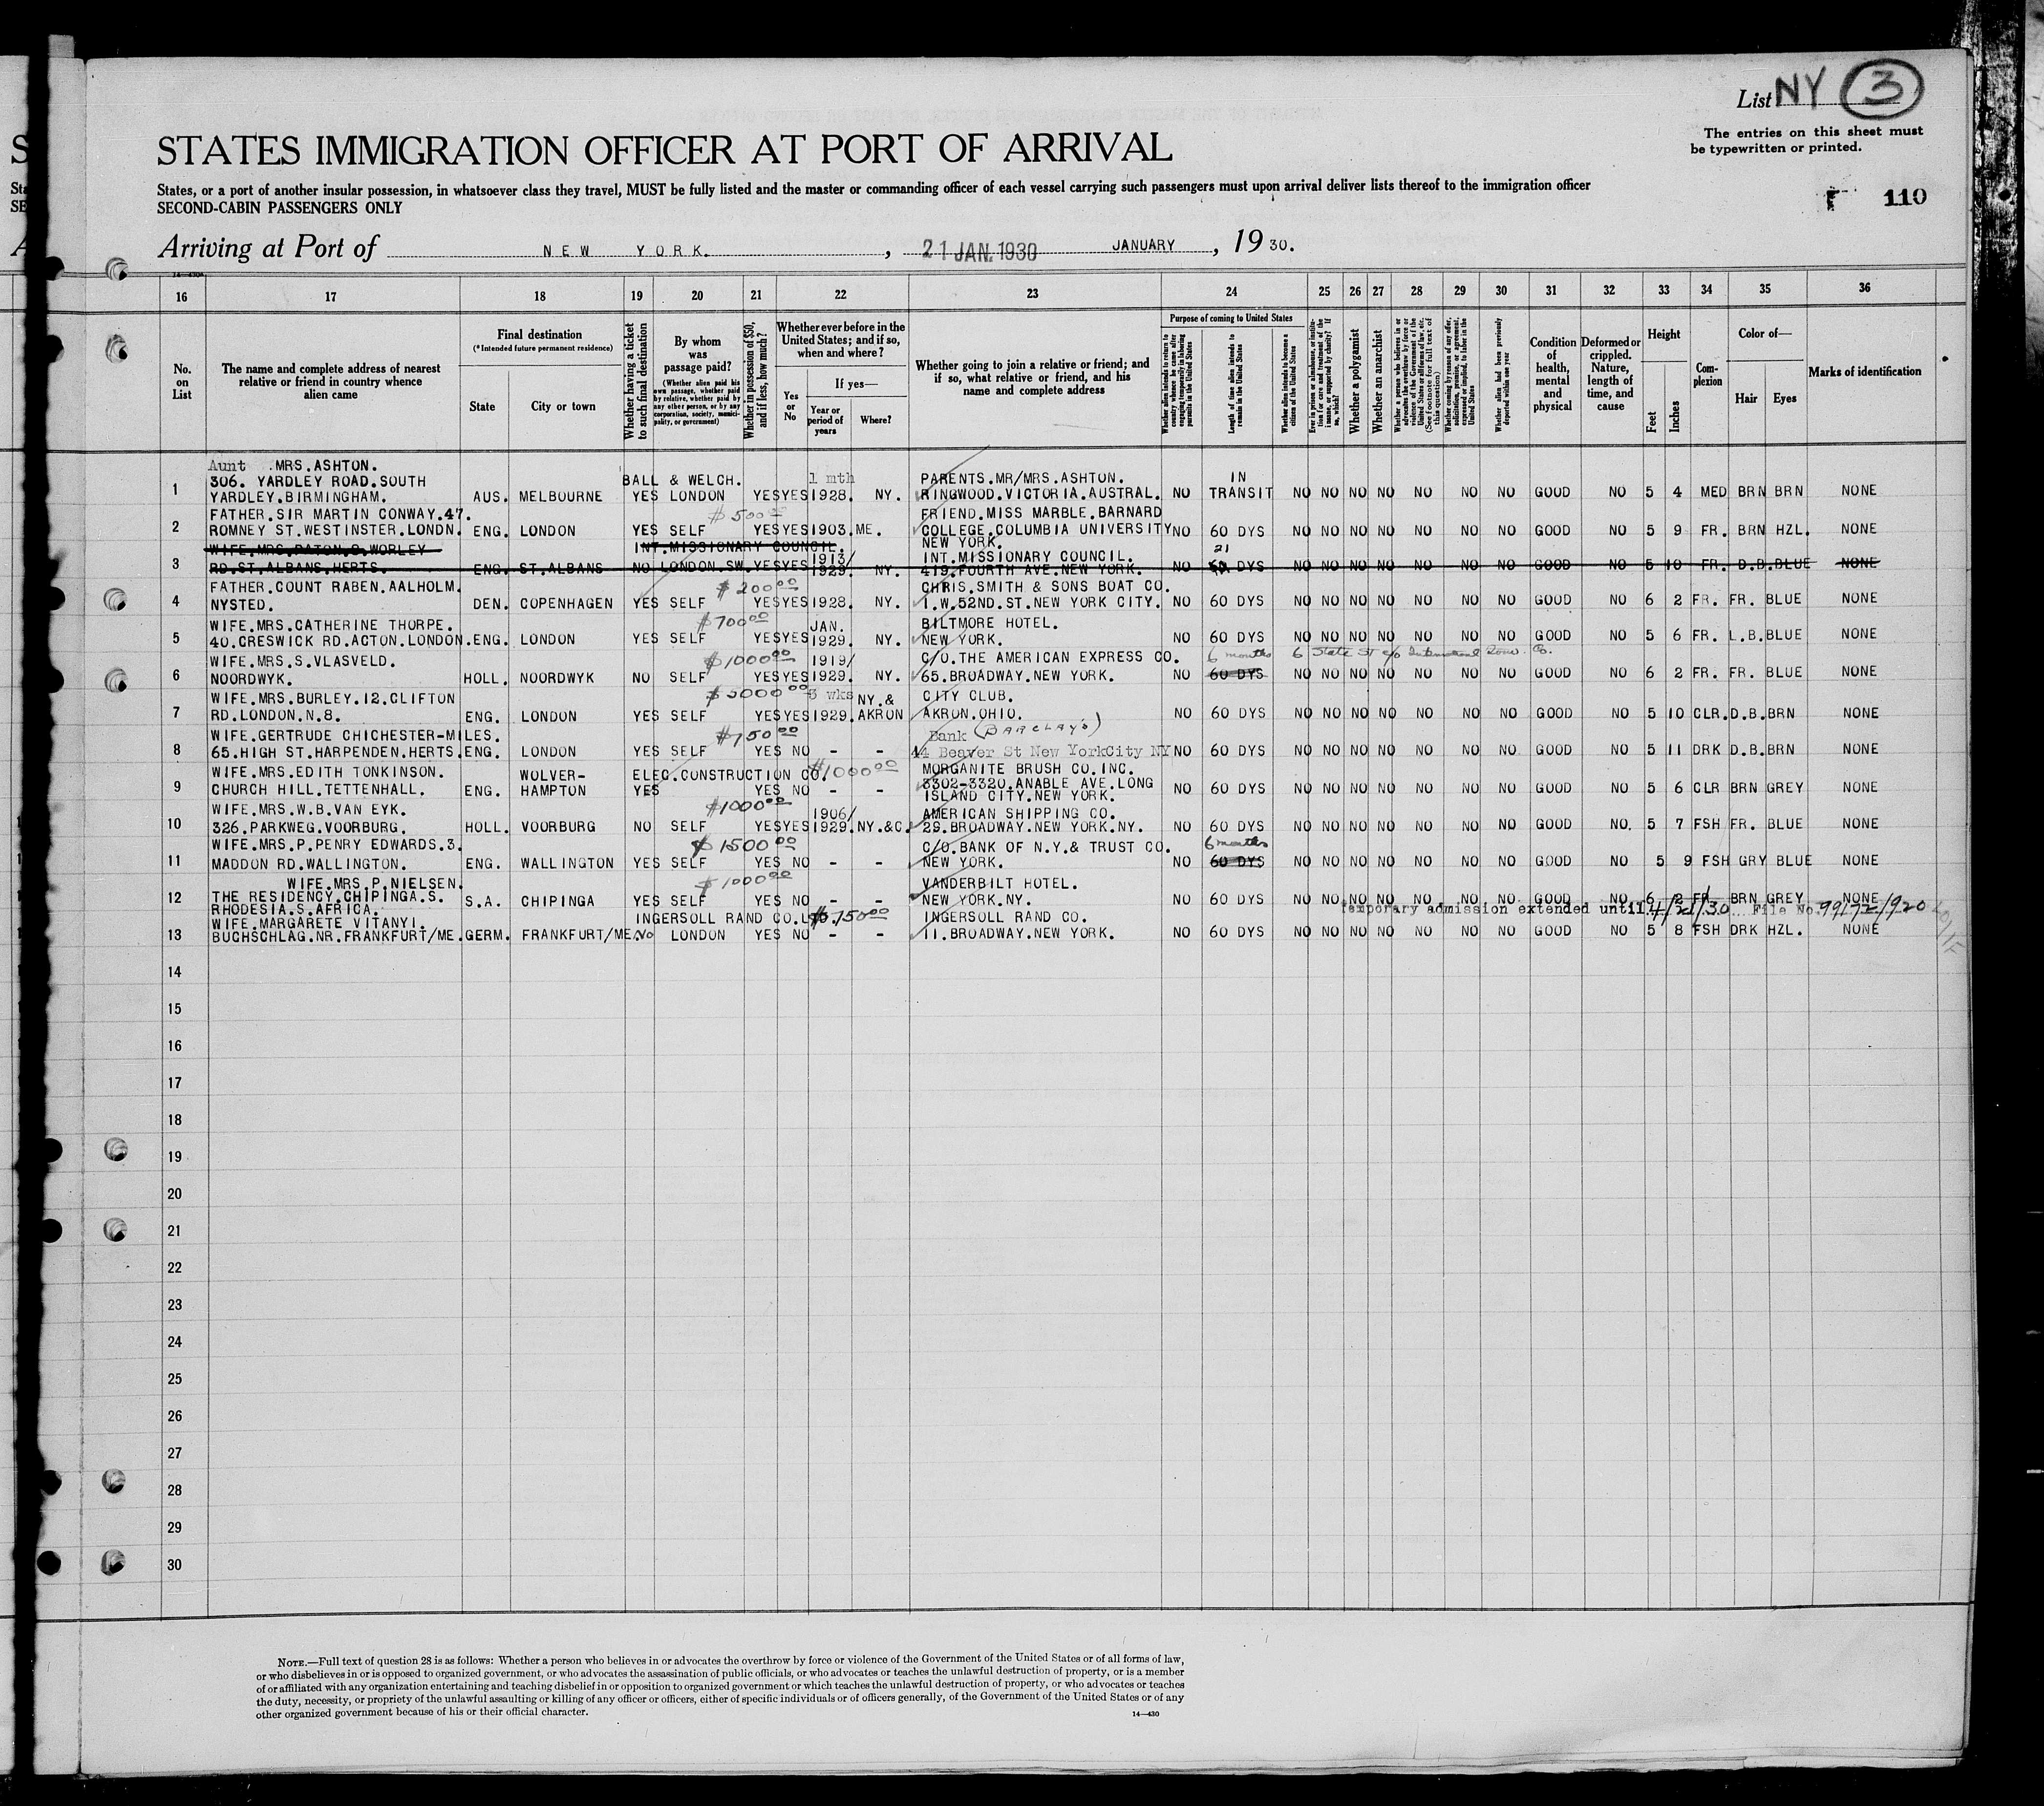 List NY 3
The entries on this sheet must
be typewritten or printed.
STATES IMMIGRATION OFFICER AT PORT OF ARRIVAL
States, or a port of another insular possession, in whatsoever class they travel, MUST be fully listed and the master or commanding officer of each vessel carrying such passengers must upon arrival deliver lists thereof to the immigration officer
SECOND-CABIN PASSENGERS ONLY
110
Arriving at Port of NEW YORK. , 21 JAN. 1930 JANUARY , 19 30.
16 17 18 19 20 21 22 23 24 25 26 27 28 29 30 31 32 33 34 35 36
No. on List
The name and complete address of nearest relative or friend in country whence alien came
Final destination
(*Intended future permanent residence)
State
City or town
Whether having a ticket to such final destination
By whom was passage paid?
(Whether alien paid his own passage, whether paid by relative, whether paid by any other person, or by any corporation, society, municipality, or government)
Whether in possession of $50, and if less, how much?
Whether ever before in the United States; and if so, when and where?
Yes or No
If yes—
Year or period of years
Where?
Whether going to join a relative or friend; and if so, what relative or friend, and his name and complete address
Purpose of coming to United States
Length of time alien intends to remain in the United States
Whether alien intends to become a citizen of the United States
Whether a polygamist
Whether an anarchist
Whether alien had been previously deported within one year
Condition of health, mental and physical
Deformed or crippled. Nature, length of time, and cause
Height
Feet
Inches
Complexion
Color of—
Hair
Eyes
Marks of identification
Aunt MRS.ASHTON. BALL & WELCH. 1 mth PARENTS.MR/MRS.ASHTON. IN
306. YARDLEY ROAD.SOUTH
1 YARDLEY.BIRMINGHAM. AUS. MELBOURNE YES LONDON YES YES 1928. NY. RINGWOOD.VICTORIA.AUSTRAL. NO TRANSIT NO NO NO NO NO NO NO GOOD NO 5 4 MED BRN BRN NONE
FATHER.SIR MARTIN CONWAY.47. $500 FRIEND.MISS MARBLE.BARNARD
2 ROMNEY ST.WESTINSTER.LONDN. ENG. LONDON YES SELF YES YES 1903. ME. COLLEGE.COLUMBIA UNIVERSITY NO 60 DYS NO NO NO NO NO NO NO GOOD NO 5 9 FR. BRN HZL. NONE
NEW YORK.
WIFE.MRS.PATON.8.WORLEY INT.MISSIONARY COUNCIL. 1913/ INT.MISSIONARY COUNCIL. 21
3 RD.ST.ALBANS.HERTS. ENG. ST.ALBANS NO LONDON.SW. YES YES 1929. NY. 419.FOURTH AVE.NEW YORK. NO DYS NO NO NO NO NO NO NO GOOD NO 5 10 FR. D.B. BLUE NONE
FATHER.COUNT RABEN.AALHOLM. $200 00 CHRIS.SMITH & SONS BOAT CO.
4 NYSTED. DEN. COPENHAGEN YES SELF YES YES 1928. NY. 1.W.52ND.ST.NEW YORK CITY. NO 60 DYS NO NO NO NO NO NO NO GOOD NO 6 2 FR. FR. BLUE NONE
WIFE.MRS.CATHERINE THORPE. $700 00 JAN. BILTMORE HOTEL.
5 40.CRESWICK RD.ACTON.LONDON. ENG. LONDON YES SELF YES YES 1929. NY. NEW YORK. NO 60 DYS NO NO NO NO NO NO NO GOOD NO 5 6 FR. L.B. BLUE NONE
WIFE.MRS.S.VLASVELD. $1000 00 1919/ C/O.THE AMERICAN EXPRESS CO. 6 months 6 State St c/o Co.
6 NOORDWYK. HOLL. NOORDWYK NO SELF YES YES 1929. NY. 65.BROADWAY.NEW YORK. NO 60 DYS NO NO NO NO NO NO NO GOOD NO 6 2 FR. FR. BLUE NONE
WIFE.MRS.BURLEY.12.CLIFTON $5000 00 3 wks NY.& CITY CLUB.
7 RD.LONDON.N.8. ENG. LONDON YES SELF YES YES 1929. AKRON AKRON.OHIO. NO 60 DYS NO NO NO NO NO NO NO GOOD NO 5 10 CLR. D.B. BRN NONE
WIFE.GERTRUDE CHICHESTER-MILES. $750 00 Bank (BARCLAY'S)
8 65.HIGH ST.HARPENDEN.HERTS. ENG. LONDON YES SELF YES NO - - 44 Beaver St New YorkCity NY NO 60 DYS NO NO NO NO NO NO NO. GOOD NO 5 11 DRK D.B. BRN NONE
WIFE.MRS.EDITH TONKINSON. WOLVER- ELEC.CONSTRUCTION CO. $1000 00 MORGANITE BRUSH CO.INC.
9 CHURCH HILL.TETTENHALL. ENG. HAMPTON YES YES NO - - 3302-3320.ANABLE AVE.LONG NO 60 DYS NO NO NO NO NO NO NO GOOD NO 5 6 CLR BRN GREY NONE
ISLAND CITY.NEW YORK.
WIFE.MRS.W.B.VAN EYK. $1000 00 1906/ AMERICAN SHIPPING CO.
10 326.PARKWEG.VOORBURG. HOLL. VOORBURG NO SELF YES YES 1929. NY.&C. 29.BROADWAY.NEW YORK.NY. NO 60 DYS NO NO NO NO NO NO NO GOOD NO. 5 7 FSH FR. BLUE NONE
WIFE.MRS.P.PENRY EDWARDS.3. $1500 00 C/O.BANK OF N.Y.& TRUST CO. 6 months
11 MADDON RD.WALLINGTON. ENG. WALLINGTON YES SELF YES NO - - NEW YORK. NO 60 DYS NO NO NO NO NO NO NO GOOD NO 5 9 FSH GRY BLUE NONE
WIFE.MRS.P.NIELSEN. $1000 00 VANDERBILT HOTEL.
12 THE RESIDENCY.CHIPINGA.S. S.A. CHIPINGA YES SELF YES NO - - NEW YORK.NY. NO 60 DYS NO NO NO NO NO NO NO. GOOD NO 6 2 FR BRN GREY NONE
RHODESIA.S.AFRICA. Temporary admission extended until 4/21/30 File No. 99172/920
WIFE.MARGARETE VITANYI. INGERSOLL RAND CO.L $750 00 INGERSOLL RAND CO.
13 BUCHSCHLAG.NR.FRANKFURT/ME. GERM. FRANKFURT/ME. No LONDON YES NO - - 11.BROADWAY.NEW YORK. NO 60 DYS NO NO NO NO NO NO NO GOOD NO 5 8 FSH DRK HZL. NONE
14
15
16
17
18
19
20
21
22
23
24
25
26
27
28
29
30
NOTE.—Full text of question 28 is as follows: Whether a person who believes in or advocates the overthrow by force or violence of the Government of the United States or of all forms of law,
or who disbelieves in or is opposed to organized government, or who advocates the assassination of public officials, or who advocates or teaches the unlawful destruction of property, or is a member
of or affiliated with any organization entertaining and teaching disbelief in or opposition to organized government or which teaches the unlawful destruction of property, or who advocates or teaches
the duty, necessity, or propriety of the unlawful assaulting or killing of any officer or officers, either of specific individuals or of officers generally, of the Government of the United States or of any
other organized government because of his or their official character.
14—430